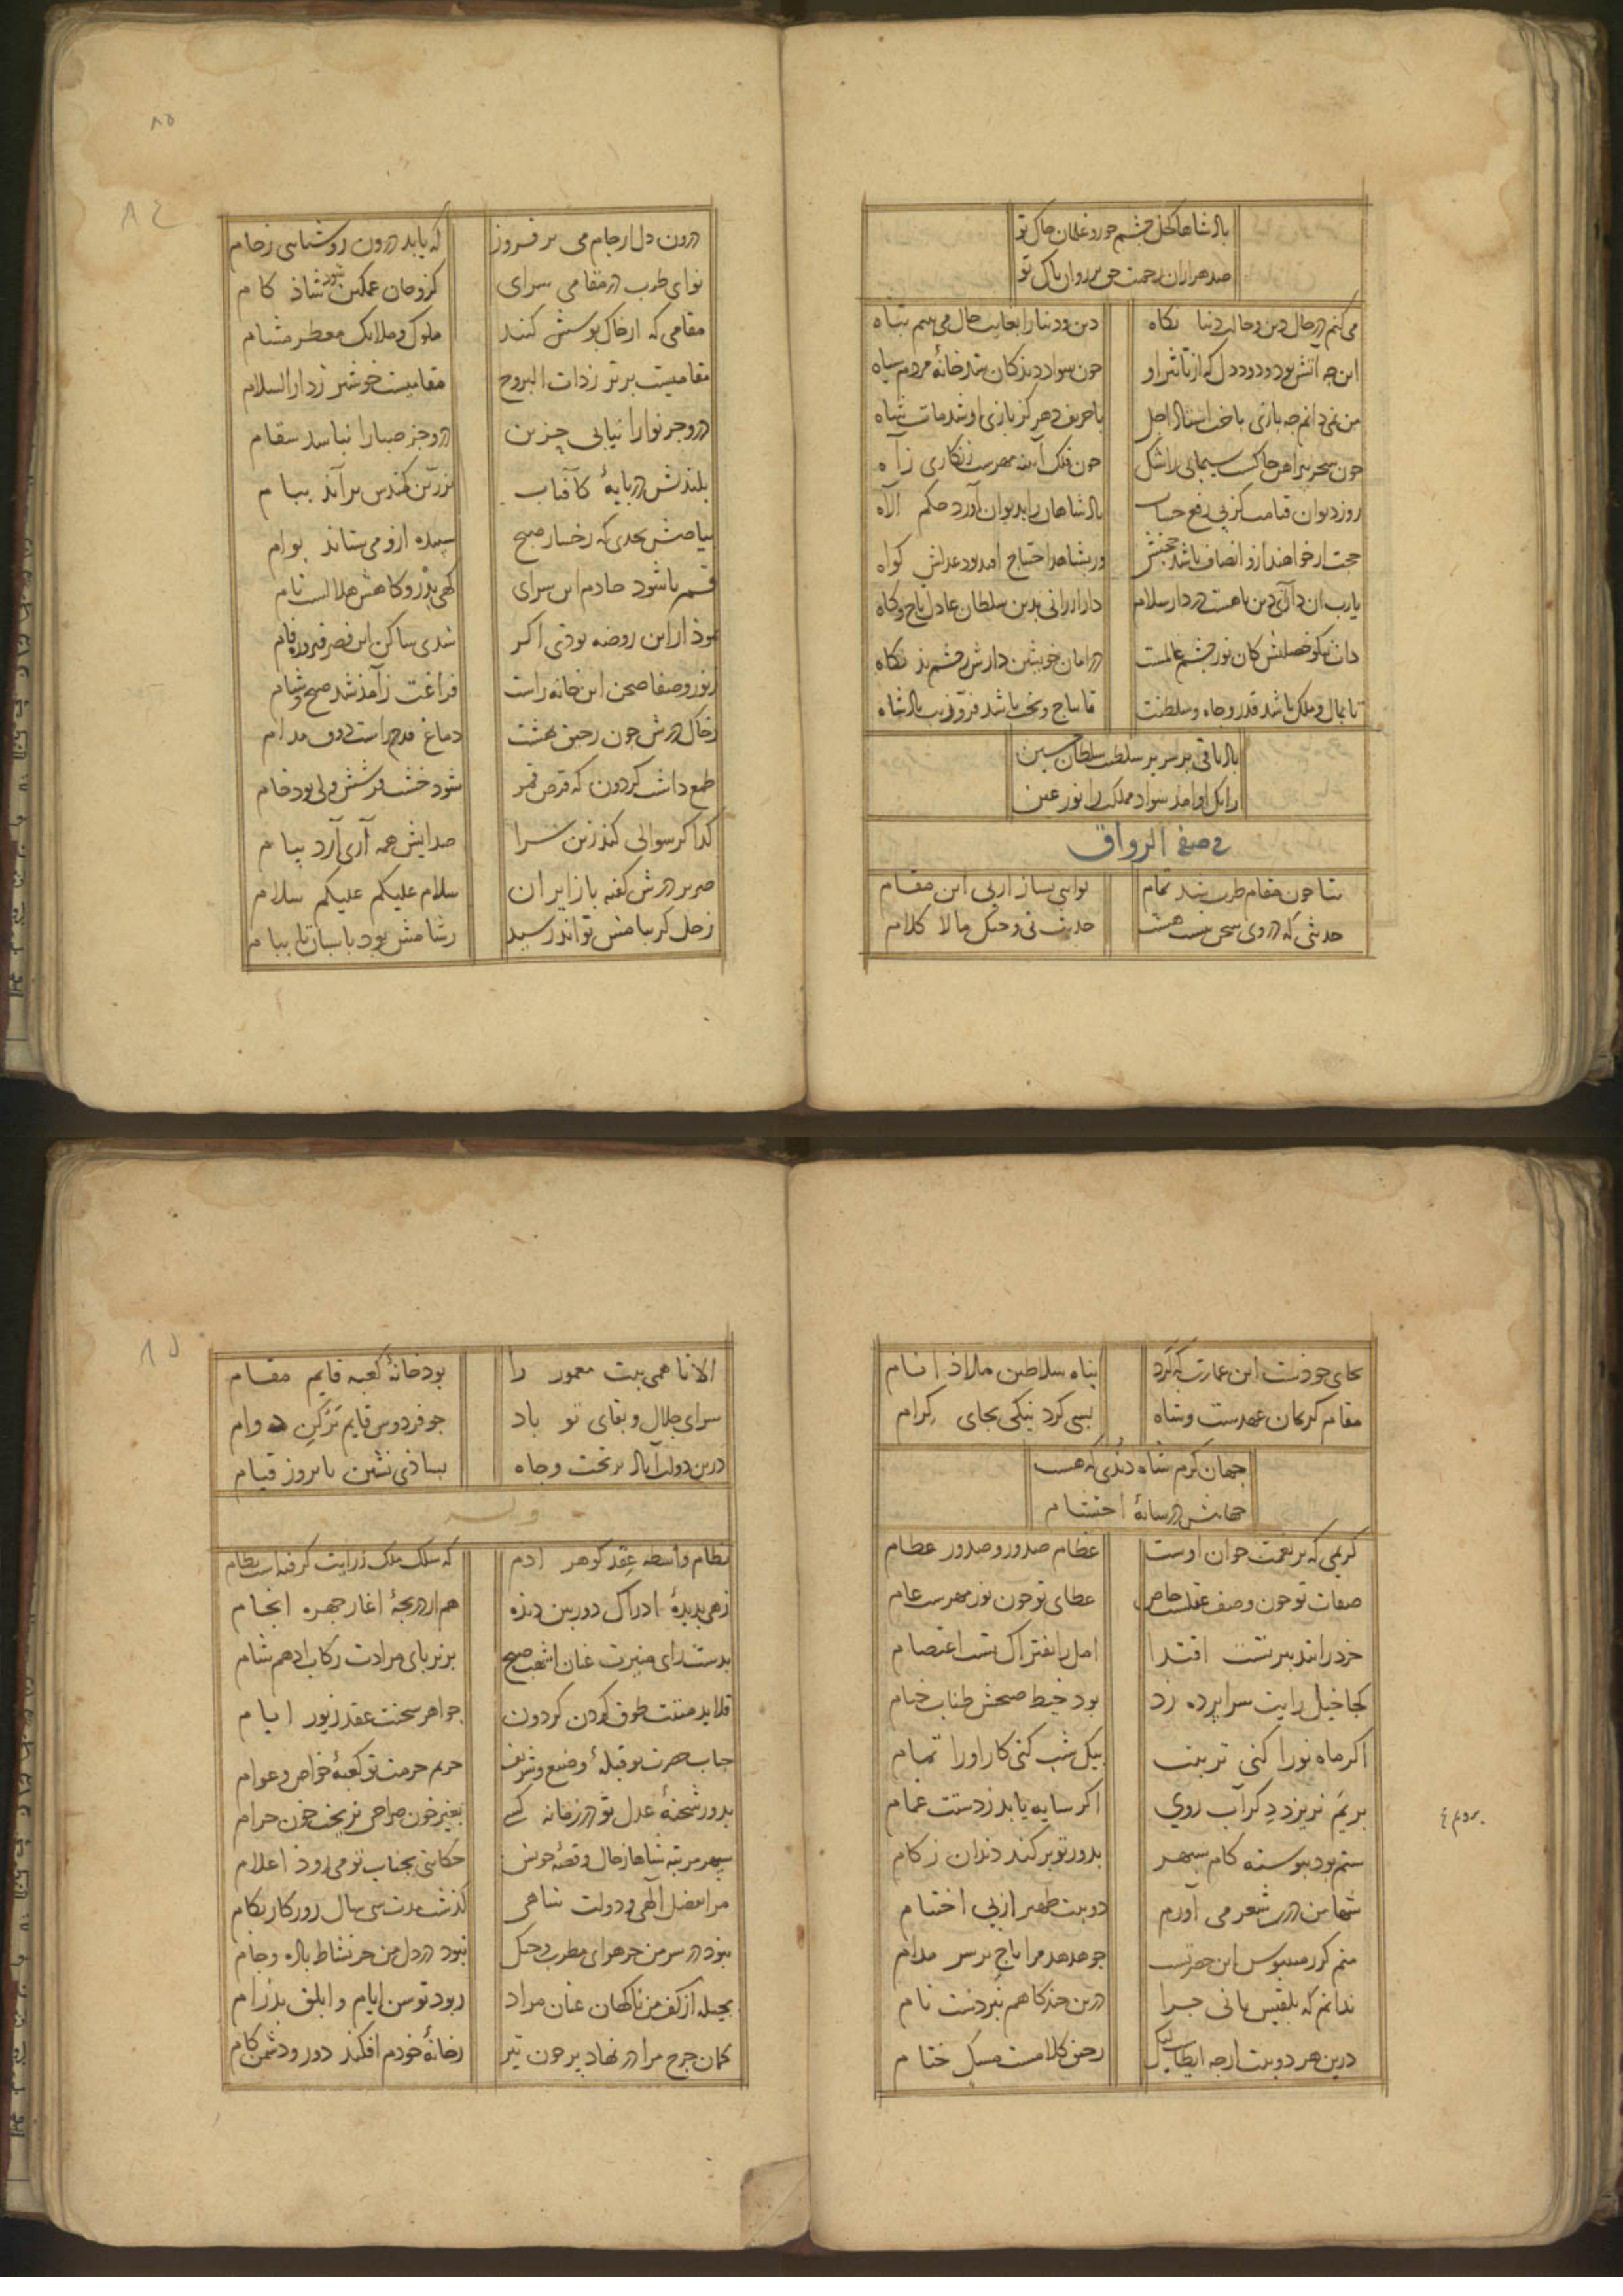 بادشاها کحل چشم حور و غلمان خاک تو
صد هزاران رحمت حق بر روان پاک تو
می کنم در حال دین و حالت دنیا نگاه
دین و دنیا را بغایت حال می بینم تباه
این چه آتش بود و دود دل که از تاثیر او
چون سواد دیدگان شد خانهٔ مردم سیاه
من نمی دانم چه بازی باخت استاد اجل
با حریف دهر کز بازی او شد مات شاه
چون سحر پیراهن چاکست سیمابی سرشک
چون فلک آیینه مهرست زنگاری ز آه
روز دیوان قیامت کز پی رفع حساب
بادشاهان را بدیوان آورد حکم اله
حجت ار خواهند ازو انصاف باشد حجتش
ور بشاهد احتیاج افتد بود عدلش گواه
یارب ان دارای دین را هست در دار سلام
دار ارزانی بدین سلطان عادل تاج و گاه
ذات نیکو خصلتش کان نور چشم عالمست
در امان خویشتن دارش ز چشم بد نگاه
تا بمال و ملک باشد قدر و جاه و سلطنت
تا بتاج و تخت باشد فر و زیب بادشاه
باد باقی بر سریر سلطنت سلطان حسین
ازانک او آمد سواد مملکت را نور عین
فی صفة الرواق
بتا چون مقام طرب شد تمام
نوایی بساز از پی این مقام
حدیثی که در وی سخن نیست هست
حدیث نی و چنگ و مالا کلام
۸۵
۸٤
درون دل از جام می بر فروز
که یابد درون روشنایی ز جام
نوای طرب در مقامی سرای
کزو جان غمگین شود شاذ کام
مقامی که از خاک بوسش کنند
ملوک و ملائک معطر مشام
مقامیست برتر ز ذات البروج
مقامیست خوشتر ز دار السلام
درو جز نوا را نیابی حزین
درو جز صبا را نباشد سقام
بلندش در پایهٔ کآفتاب
بزرین کمندش بر آید ببام
بیاضش بحدی که رخسار صبح
سپیده ازو می ستاند بوام
قمر تا شود خادم این سرای
گهی بذر و گاهش هلالست نام
نمودار این روضه بودی اگر
شدی ساکن این قصر فیروزه فام
ز نور و صفا صحن این خانه راست
فراغت ز آمد شد صبح و شام
ز خاک درش چون رحیق بهشت
دماغ قدح راست ذوق مدام
طمع داشت گردون که قرص قمر
شود خشت فرشش ولی بود خام
گدا گر سوالی کند زین سرا
صدایش همه آری آرد پیام
صریر درش گفته با زایران
سلام علیکم علیکم سلام
زحل گر ببامش تواند رسید
شامش بود پاسبان ببام
بجای خودست این عمارت که کرد
پناه سلاطین ملاذ انام
مقام کریمان عهدست و شاه
بسی کرد نیکی بجای کرام
جهان کرم شاه دندی که هست
جهانش در سایهٔ احتشام
کریمی که بر نعمت خوان اوست
عظام صدور و صدور عظام
صفات تو چون وصف عقلست خاص
عطای تو چون نور مهرست عام
خرد را بتدبیر تست اقتدا
امل را بفتراک تست اعتصام
کجا خیل رایت سراپرده زد
بود خیط صبحش طناب خیام
اگر ماه نو را کنی تربیت
بیک شب کنی کار او را تمام
بریم نریزد دگر آب روی
اگر سایه یابد ز دستت غمام
ستم بود پیوسته کام سپهر
بدور تو بر کند دندان ز کام
شها من درین شعر می آورم
دو بیت ظهیر از پی اختتام
منم کز زمین بوس این حضرتست
چو هدهد مرا تاج بر سر مدام
ندانم که بلقیس ثانی چرا
درین حد گاهم نبردست نام
درین هر دو بیت ارچه ایطاست لیک
رحیق کلامست مسک ختام
۸۵
الا تا همی بیت معمور را
بود خانهٔ کعبه قایم مقام
سرای جلال و بقای تو باد
چو فردوس قایم برکن دوام
درین دولت آباد بر تخت و جاه
بشاذی نشین تا بروز قیام
وله
نظام واسطه عقد گوهر ادم
که سلک ملک ز رایت گرفته است نظام
زهی بدیدهٔ ادراک دور بین دیده
هم از دریچهٔ اغاز چهره انجام
بدست رای منیرت عنان اشهب صبح
بزیر پای مرادت رکاب ادهم شام
قلاید مننت طوق گردن گردون
جواهر سخنت عقد زیور ایام
جناب حضرت تو قبلهٔ وضیع و شریف
حریم حرمت تو کعبهٔ خواص و عوام
بدور شحنهٔ عدل تو در زمانه کسی
بغیر خون صراحی نریخت خون حرام
سپهر مرتبه شاها ز حال و قصهٔ خویش
حکایتی بجناب تو می رود اعلام
مرا بفضل الهی و دولت شاهی
گذشت مدت سی سال روزگار بکام
نبود در سر من جز هوای مطرب و چنگ
نبود در دل من جز نشاط باده و جام
بحیله از کف من ناگهان عنان مراد
ربود توسن ایام و ابلق بذرام
کمان چرخ مرا در نهاد پر چون تیر
ز خانهٔ خودم افگند دور و دشمن کام